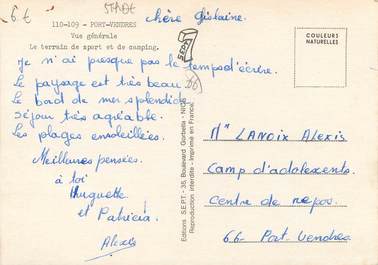 6.€
STADE
110-109 - PORT-VENDRES
Vue générale
Le terrain de sport et de camping.
chère Gislaine.
Je n'ai presque pas le temps d'écrire.
Le paysage est très beau.
Le bord de mer splendide
Séjour très agréable.
Les plages ensoleillées.
Meilleures pensées.
à toi
Huguette
et Patricia.
Alexis
66
SEPT
Editions S.E.P.T. - 35, Boulevard Gorbella - NICE
Reproduction interdite - Imprimé en France
COULEURS
NATURELLES
Mr LANOIX Alexis
Camp d'adolescents.
Centre de repos.
66- Port-Vendres